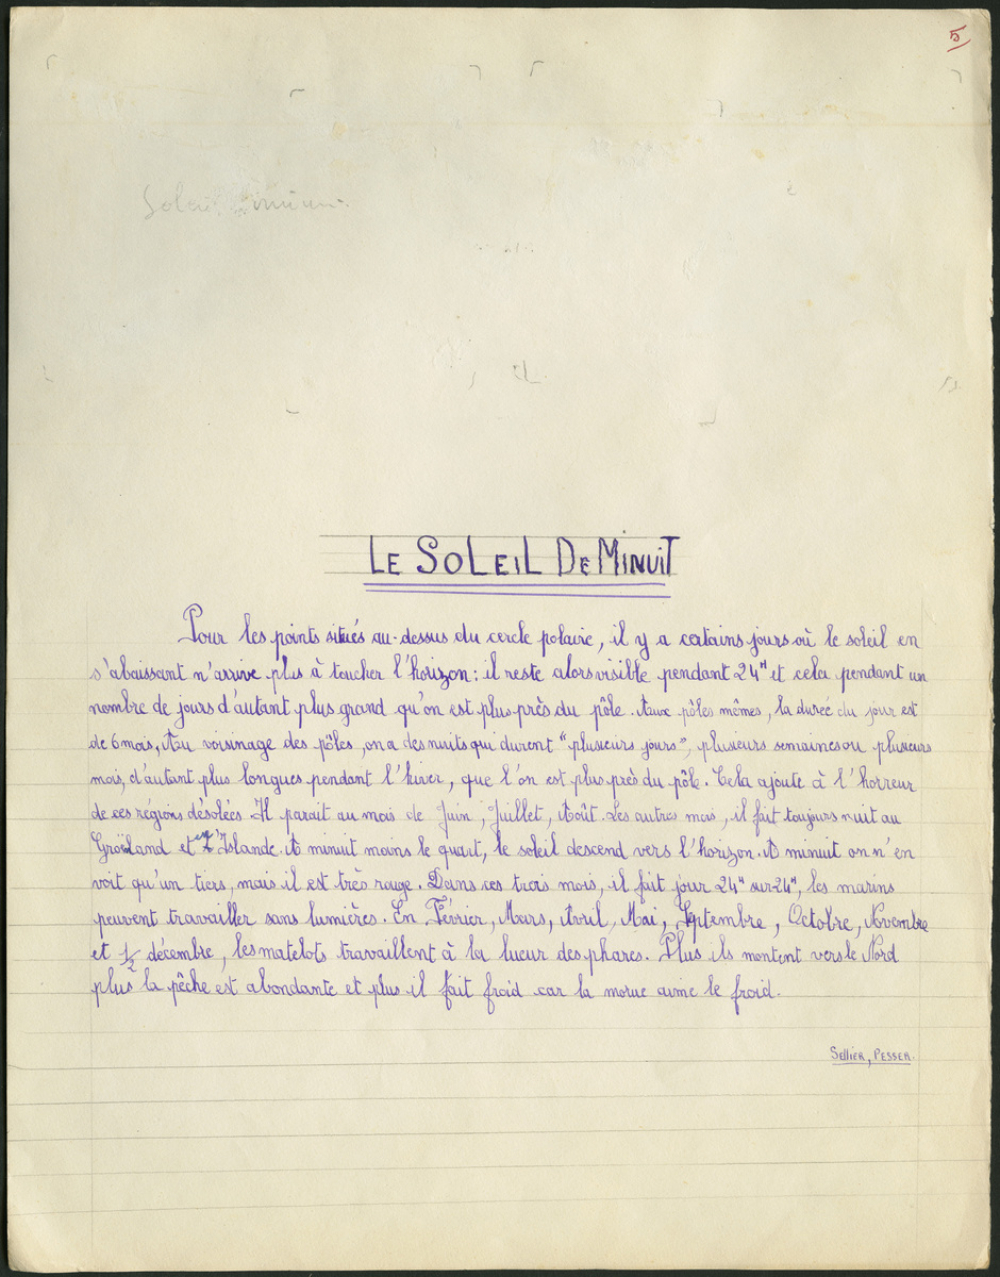 5
Soleil minui
LE SOLEIL DE MINUIT
Pour les points situés au-dessus du cercle polaire, il y a certains jours où le soleil en
s'abaissant n'arrive plus à toucher l'horizon : il reste alors visible pendant 24H et cela pendant un
nombre de jours d'autant plus grand qu'on est plus près du pôle. Aux pôles mêmes, la durée du jour est
de 6 mois, Au voisinage des pôles, on a des nuits qui durent "plusieurs jours", plusieurs semaines ou plusieurs
mois, d'autant plus longues pendant l'hiver, que l'on est plus près du pôle. Cela ajoute à l'horreur
de ces régions désolées. Il parait au mois de Juin, Juillet, Août. Les autres mois, il fait toujours nuit au
Groëland et en Islande. A minuit moins le quart, le soleil descend vers l'horizon. A minuit on n'en
voit qu'un tiers, mais il est très rouge. Dans ces trois mois, il fait jour 24H sur 24H, les marins
peuvent travailler sans lumières. En Février, Mars, Avril, Mai, Septembre, Octobre, Novembre
et 1/2 décembre, les matelots travaillent à la lueur des phares. Plus ils montent vers le Nord
plus la pêche est abondante et plus il fait froid car la morue aime le froid.
SELLIER, PESSER.